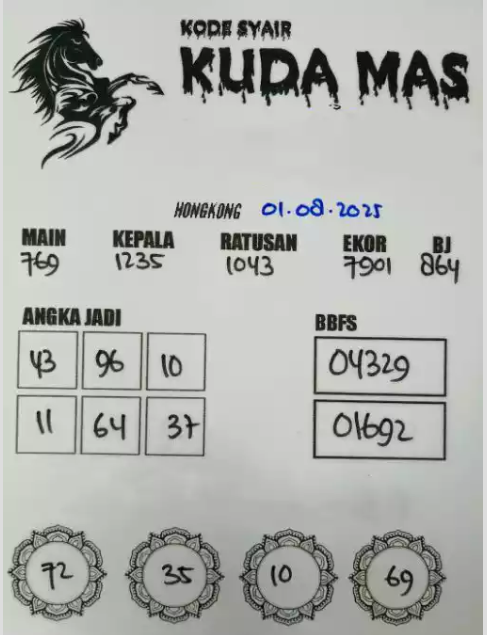 KODE SYAIR
KUDA MAS
HONGKONG 01.08.2025
MAIN KEPALA RATUSAN EKOR BJ
769 1235 1043 7901 864
ANGKA JADI BBFS
43 96 10 04329
11 64 37 01692
72 35 10 69